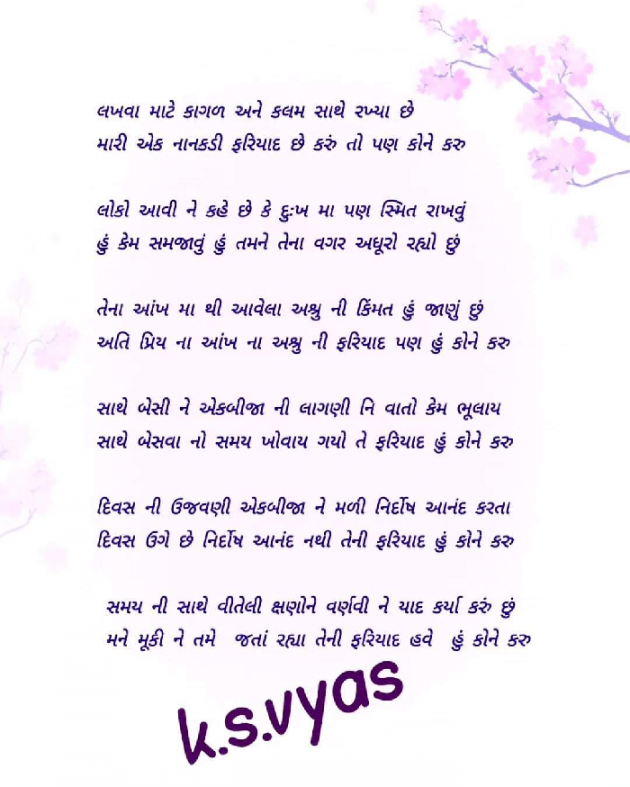 લખવા માટે કાગળ અને કલમ સાથે રખ્યા છે
મારી એક નાનકડી ફરિયાદ છે કરું તો પણ કોને કરુ
લોકો આવી ને કહે છે કે દુઃખ મા પણ સ્મિત રાખવું
હું કેમ સમજાવું હું તમને તેના વગર અધૂરો રહ્યો છું
તેના આંખ મા થી આવેલા અશ્રુ ની કિંમત હું જાણું છું
અતિ પ્રિય ના આંખ ના અશ્રુ ની ફરિયાદ પણ હું કોને કરુ
સાથે બેસી ને એકબીજા ની લાગણી નિ વાતો કેમ ભૂલાય
સાથે બેસવા નો સમય ખોવાય ગયો તે ફરિયાદ હું કોને કરુ
દિવસ ની ઉજવણી એકબીજા ને મળી નિર્દોષ આનંદ કરતા
દિવસ ઉગે છે નિર્દોષ આનંદ નથી તેની ફરિયાદ હું કોને કરુ
સમય ની સાથે વીતેલી ક્ષણોને વર્ણવી ને યાદ કર્યા કરું છું
મને મૂકી ને તમે જતાં રહ્યા તેની ફરિયાદ હવે હું કોને કરુ
k.s.vyas